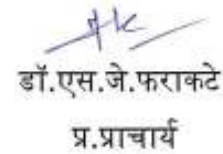 डॉ.एस.जे.फराकटे
प्र.प्राचार्य